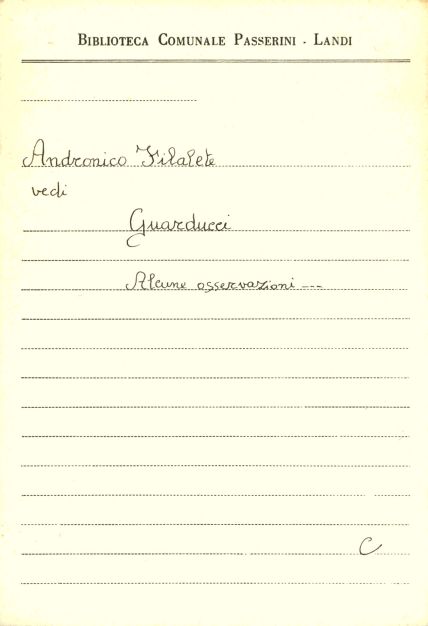 BIBLIOTECA COMUNALE PASSERINI - LANDI
Andronico Filalete
vedi
Guarducci
Alcune osservazioni ---
C